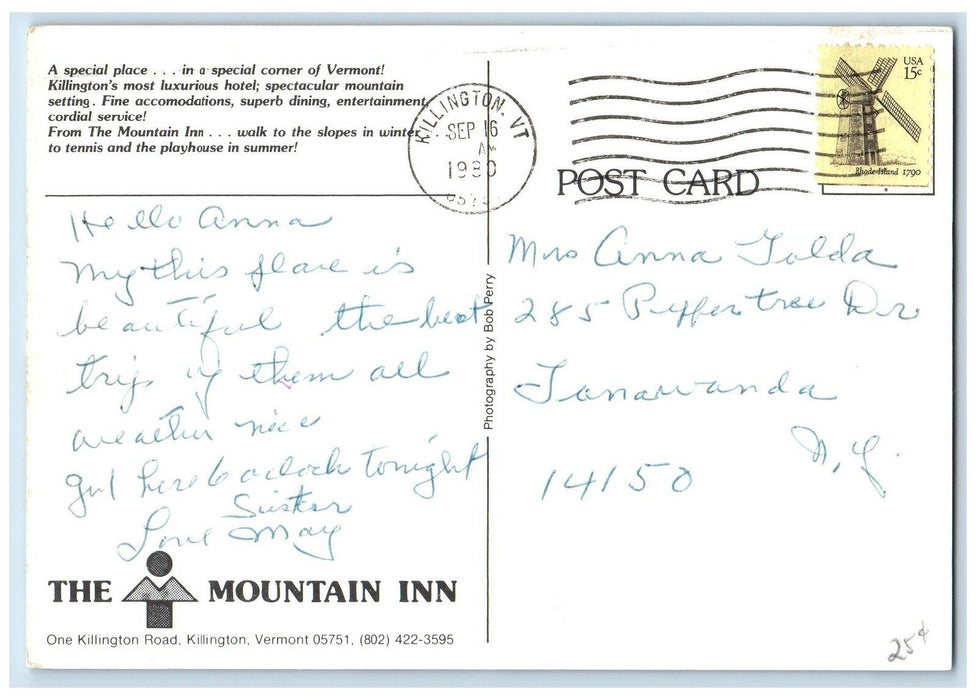 A special place . . . in a special corner of Vermont!
Killington's most luxurious hotel; spectacular mountain
setting. Fine accomodations, superb dining, entertainment,
cordial service!
From The Mountain Inn . . . walk to the slopes in winter . . .
to tennis and the playhouse in summer!
Hello Anna
My this place is
beautiful the best
trip of them all
weather nice
got here 6 oclock tonight
Sister
Love May
THE MOUNTAIN INN
One Killington Road, Killington, Vermont 05751, (802) 422-3595
Photography by Bob Perry
KILLINGTON, VT
SEP 16
AM
1980
USA
15c
Rhode Island 1790
POST CARD
Mrs Anna Folda
285 Peppertree Dr
Tonawanda
N.Y.
14150
25¢